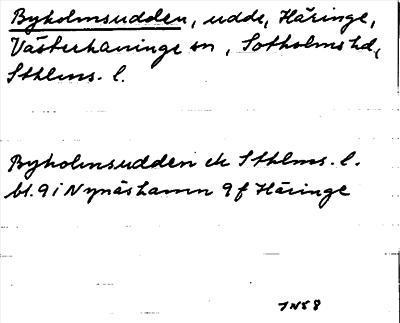 Byholmsudden, udde, Häringe,
Västerhaninge sn, Sotholms hd,
Sthlms. l.
Byholmsudden ek Sthlms. l.
bl. 9 i Nynäshamn 9 f Häringe
7 N 5 8